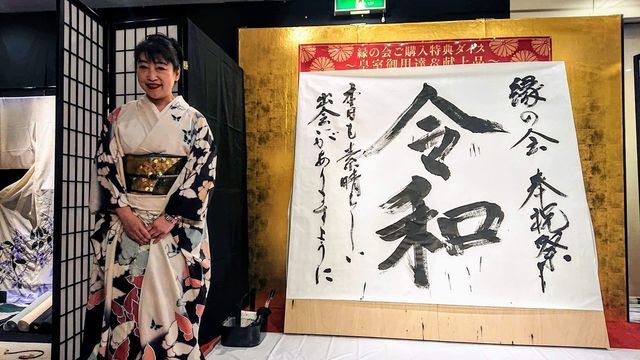 縁の会ご購入特典ダイス
～皇室御用達&献上品～
縁の会 奉祝祭
令和
本日も素晴らしい
出会いがありますように